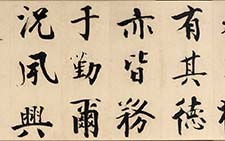 有其德
亦皆務
于勤爾
況夙興